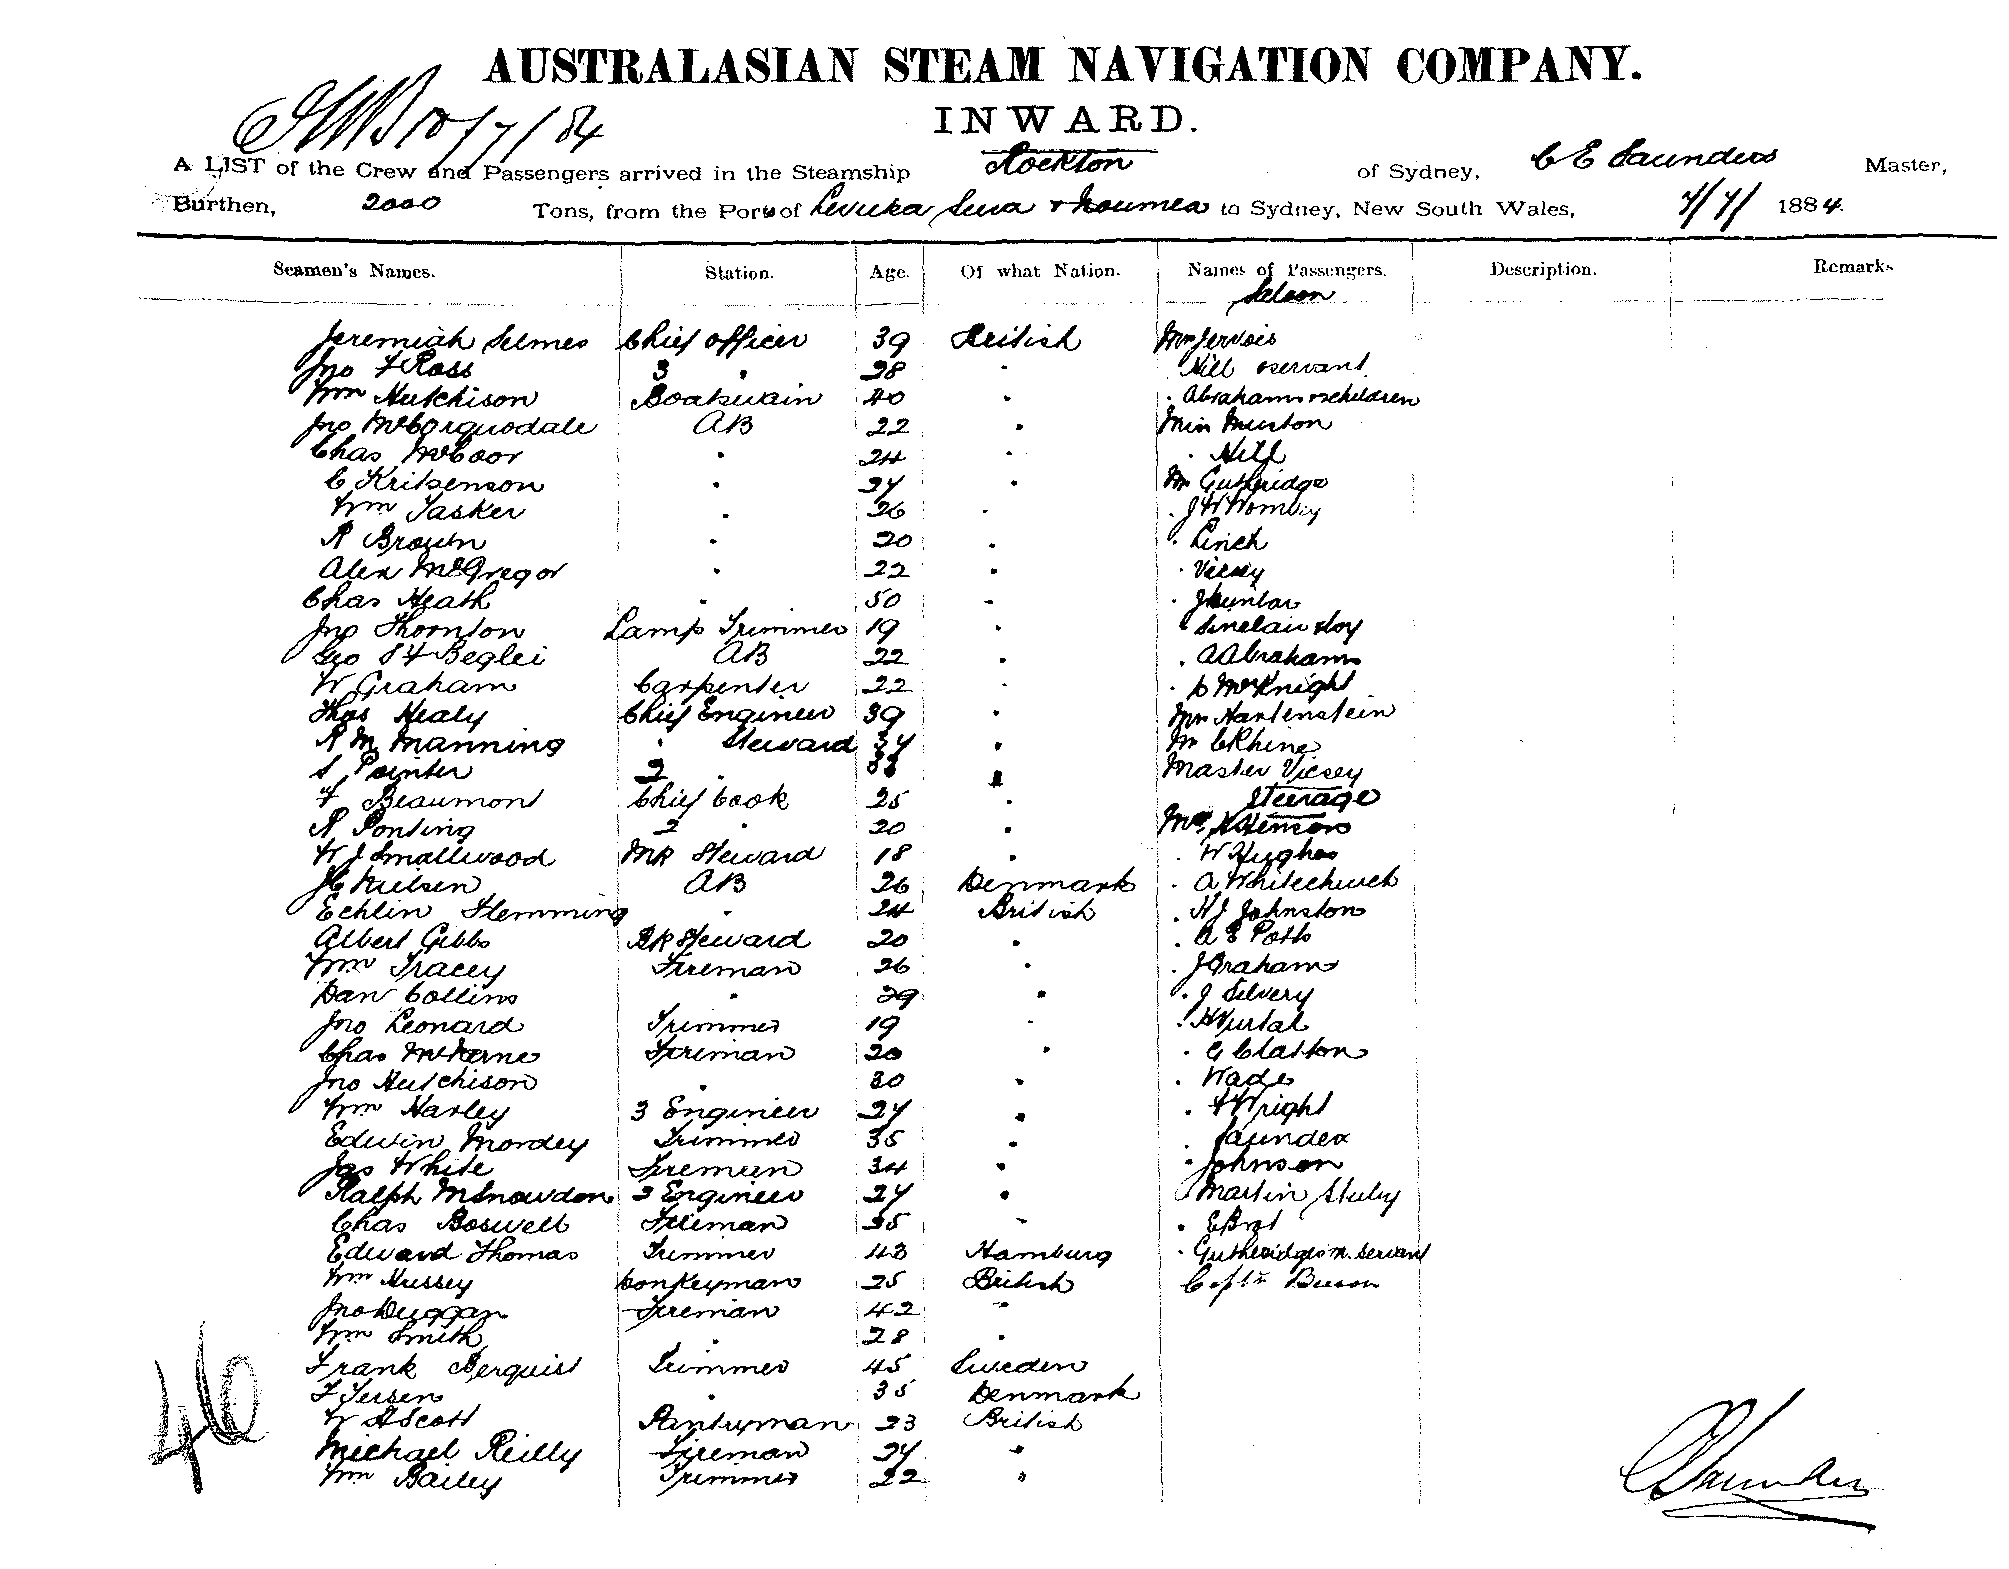 AUSTRALASIAN STEAM NAVIGATION COMPANY.
INWARD.
10/7/84
A LIST of the Crew and Passengers arrived in the Steamship Rockton of Sydney, C E Saunders Master,
Burthen, 2000 Tons, from the Ports of Levuka Suva & Noumea to Sydney, New South Wales, 7/7/ 1884.
Seamen's Names. Station. Age. Of what Nation. Names of Passengers. Description. Remarks
Saloon
Jeremiah Selmes Chief Officer 39 British Mrs Jervois
Jno F Ross 3 " 28 " Hill & servant
Wm Hutchison Boatswain 40 " " Abrahams & children
Jno McCorquodale AB 22 " Miss Muston
Chas McCoor " 24 " " Hill
C Kritsenson " 27 " Mr Guthridge
Wm Tasker " 26 " " J W Womby
R Brown " 20 " " Linck
Alex McGregor " 22 " " Viesey
Chas Heath " 50 " " J Dunlar
Jno Thornton Lamp Trimmer 19 " " Sinclair & boy
Geo S F Beglei AB 22 " " A Abrahams
W Graham Carpenter 22 " " C McKnight
Thos Healy Chief Engineer 39 " Mr Hartenstein
R M Manning " Steward 37 " Mr C Rhine
S Pointer 2 " 33 " Master Viesey
Steerage
F Beaumont Chief Cook 25 "
R Ponting 2 " 20 " Mr Atkinson
W J Smallwood MR Steward 18 " " W Hughes
J C Nielsen AB 26 Denmark " A Whitechurch
Echlin Flemming " 24 British " H J Johnston
Albert Gibbs RR Steward 20 " " A E Potts
Wm Tracey Fireman 26 " " J Graham
Dan Collins " 29 " " J Silvery
Jno Leonard Trimmer 19 " "
Chas McKerne Fireman 20 " " G Clatton
Jno Hutchison " 30 " " Wade
Wm Harley 3 Engineer 27 " " F Wright
Edwin Mordey Trimmer 35 " " Saunders
Jas White Firemen 34 " " Johnson
Ralph McSnowdon 2 Engineer 27 " Martin
Chas Boswell Fireman 35 " "
Edward Thomas Trimmer 43 Hamburg " Guthridges m. servant
Wm Hussey Donkeyman 25 British Captn
Jno Duggan Fireman 42 "
Wm Smith " 28 "
Frank Berquist Trimmer 45 Sweden
F Jessen " 35 Denmark
W A Scott Pantryman 23 British
Michael Reilly Fireman 27 "
Wm Bailey Trimmer 22 "
46
C E Saunders